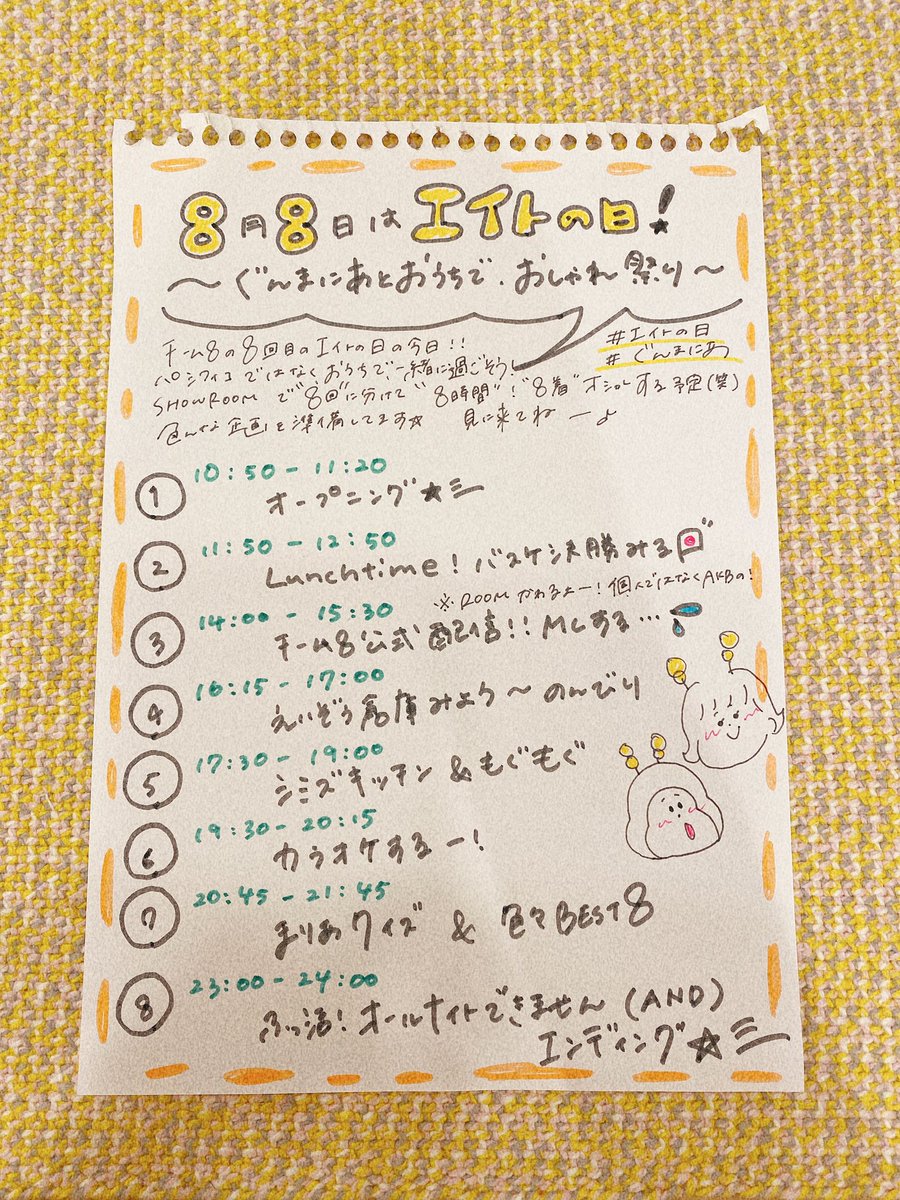 8月8日は エイトの日!
〜ぐんまにあとおうちで、おしゃれ祭り〜
チーム8の8回目のエイトの日の今日!!
パシフィコではなくおうちで一緒に過ごそう!
SHOWROOMで"8回"に分けて"8時間"!"8着"オシャレする予定(笑)
色んな企画を準備してます☆ 見に来てねー♪
#エイトの日
#ぐんまにあ
① 10:50-11:20
オープニング★彡
② 11:50-12:50
Lunchtime! バスケ決勝みる
※ROOMかわるよー!個人ではなくAKBの!
③ 14:00-15:30
チーム8公式配信!! MCする…
④ 16:15-17:00
えいぞう倉庫みよう〜のんびり
⑤ 17:30-19:00
シミズキッチン&もぐもぐ
⑥ 19:30-20:15
カラオケするー!
⑦ 20:45-21:45
まりあクイズ & 色々BEST8
⑧ 23:00-24:00
ふっ活!オールナイトできません(AND)
エンディング★彡